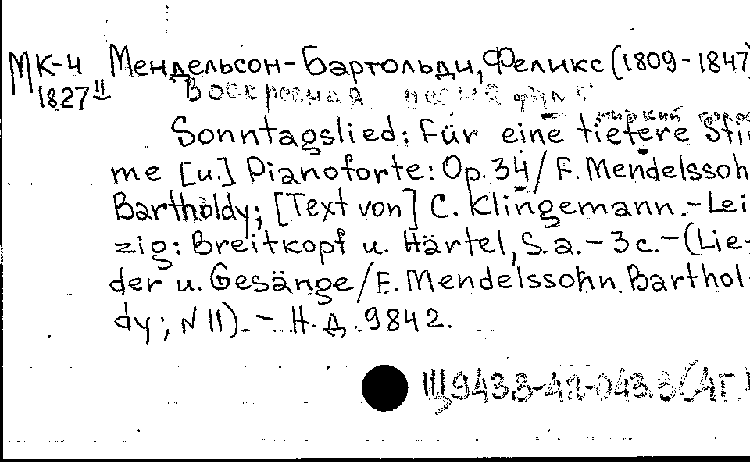 МК-4 Мендельсон-Бартольди, Феликс (1809-1847
1827 II Воскресная
Sonntagslied: Für eine tiefere Stim
me [u.] Pianoforte: Op. 34 / F. Mendelssohn
Bartholdy; [Text von] C. Klingemann. - Lei
zig: Breitkopf u. Härtel, S.a. - 3 c. - (Lie-
der u. Gesänge / F. Mendelssohn Barthol-
dy; N 11). - Н.д. 9842.
Щ943.3-42-043.3(4Г.